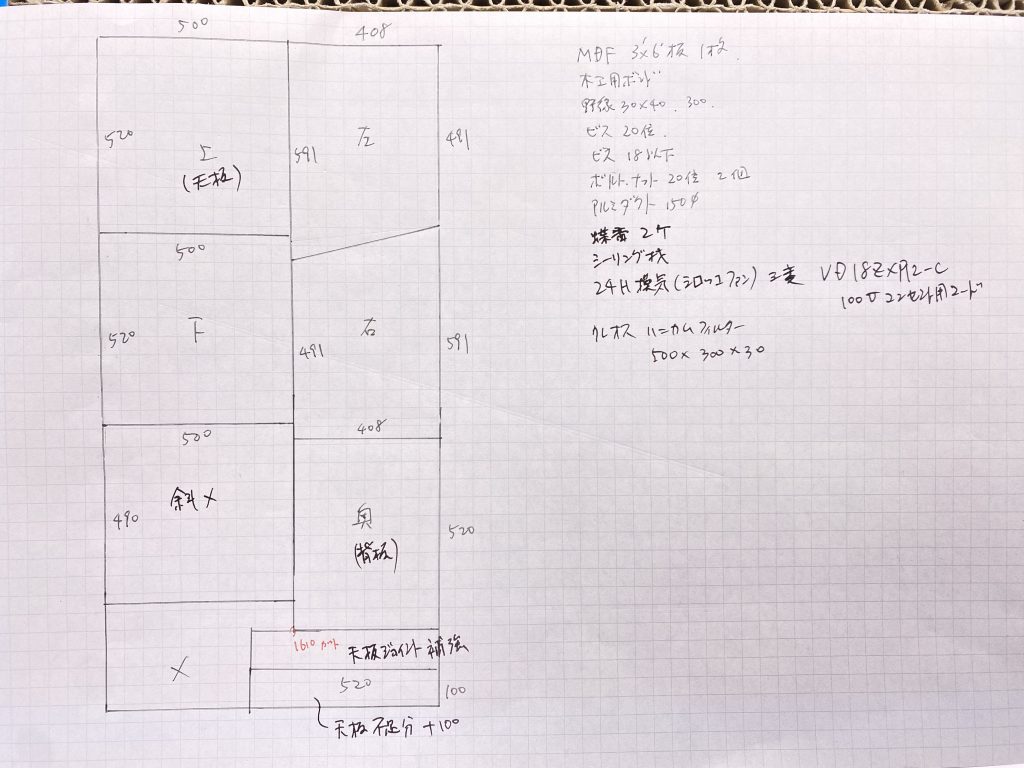 500
408
520
上
(天板)
591
左
491
500
520
下
491
右
591
500
408
490
斜メ
奥
(背板)
520
1610 カット
天板ジョイント補強
×
520
100
天板不足分 +100
MDF 3'×6'板 1枚.
木工用ボンド
野縁 30×40. 300.
ビス 20位.
ビス 18以下
ボルト.ナット 20位 2個
アルミダクト 150φ
蝶番 2ケ
シーリング材
24H 換気(シロッコファン) 三菱 VD18ZXP2-C
100V コンセント用コード
クレオス ハニカムフィルター
500×300×30